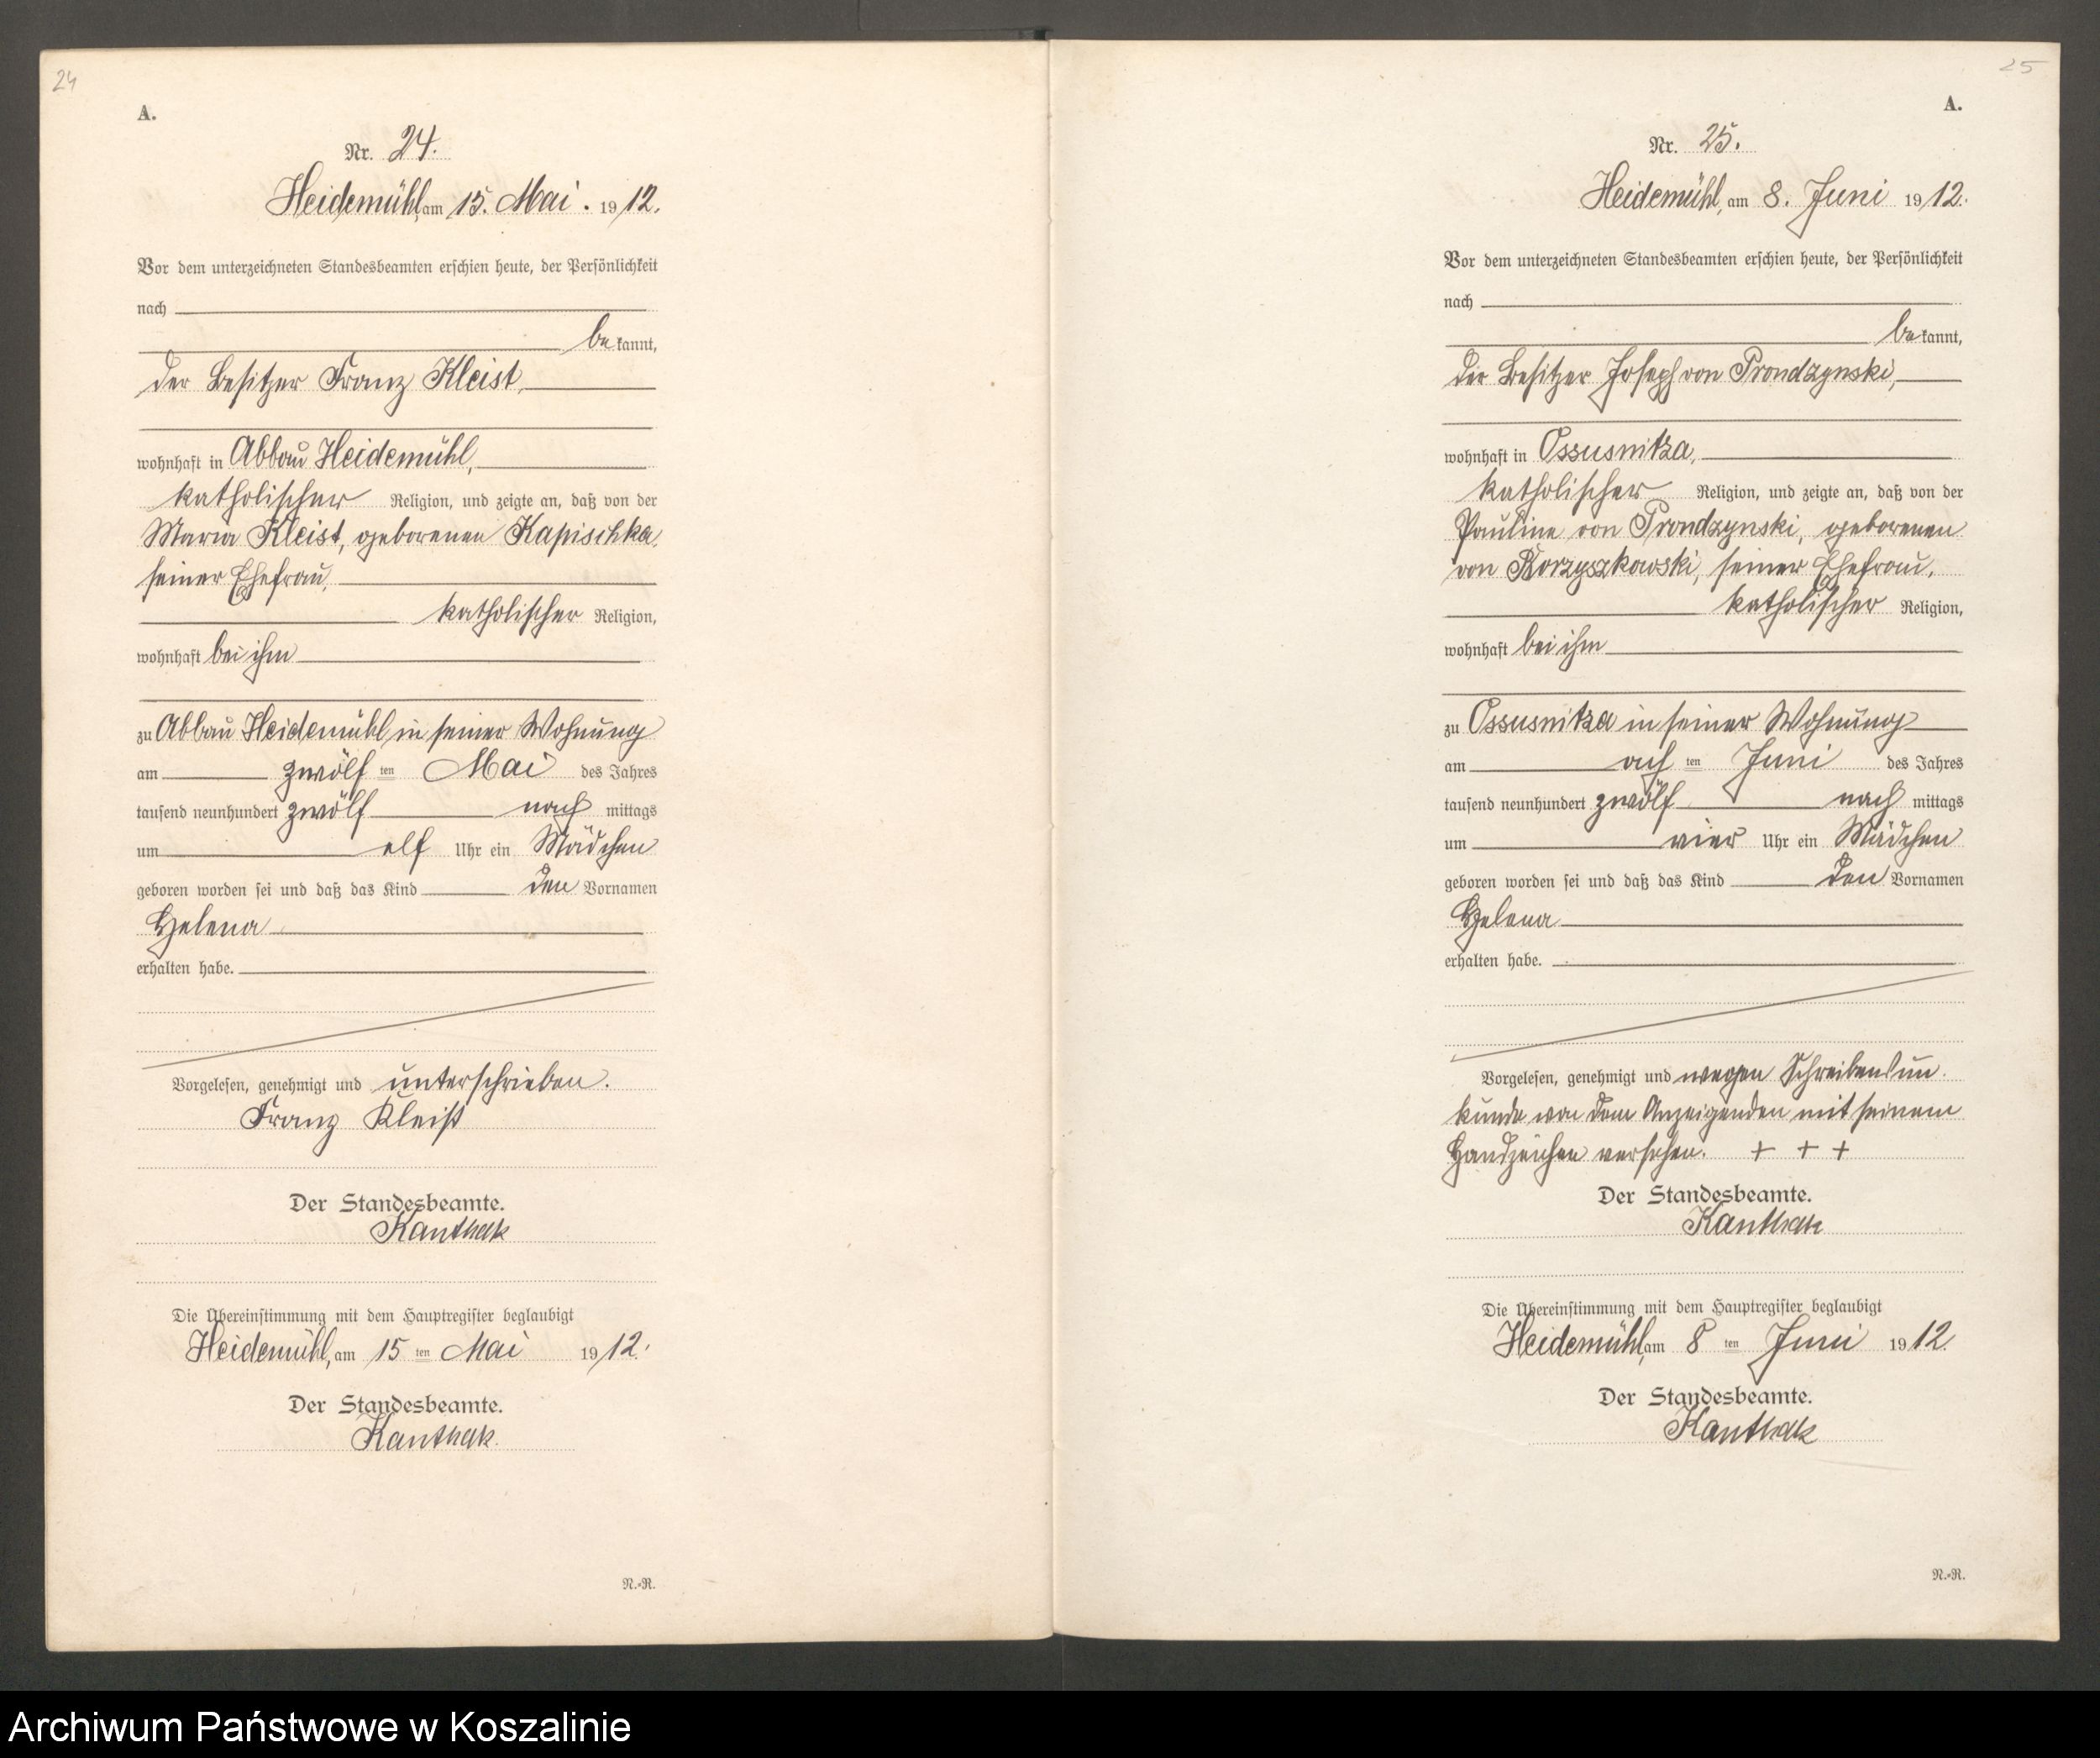 24
A.
Nr. 24.
Heidemühl, am 15. Mai. 1912.
Vor dem unterzeichneten Standesbeamten erschien heute, der Persönlichkeit
nach
bekannt,
der Besitzer Franz Kleist,
wohnhaft in Abbau Heidemühl,
katholischer Religion, und zeigte an, daß von der
Maria Kleist, geborenen Kapischka,
seiner Ehefrau,
katholischer Religion,
wohnhaft bei ihm
zu Abbau Heidemühl in seiner Wohnung
am zwölften Mai des Jahres
tausend neunhundert zwölf nach mittags
um elf Uhr ein Mädchen
geboren worden sei und daß das Kind den Vornamen
Helena
erhalten habe.
Vorgelesen, genehmigt und unterschrieben.
Franz Kleist
Der Standesbeamte.
Kanthak
Die Übereinstimmung mit dem Hauptregister beglaubigt
Heidemühl, am 15ten Mai 1912.
Der Standesbeamte.
Kanthak.
N.-R.
25
A.
Nr. 25.
Heidemühl, am 8. Juni 1912.
Vor dem unterzeichneten Standesbeamten erschien heute, der Persönlichkeit
nach
bekannt,
der Besitzer Joseph von Prondzynski,
wohnhaft in Ossusnitza,
katholischer Religion, und zeigte an, daß von der
Pauline von Prondzynski, geborenen
von Korzyszkowski, seiner Ehefrau,
katholischer Religion,
wohnhaft bei ihm
zu Ossusnitza in seiner Wohnung
am achten Juni des Jahres
tausend neunhundert zwölf nach mittags
um vier Uhr ein Mädchen
geboren worden sei und daß das Kind den Vornamen
Helena
erhalten habe.
Vorgelesen, genehmigt und wegen Schreibensun-
kunde von dem Anzeigenden mit seinem
Handzeichen versehen. + + +
Der Standesbeamte.
Kanthak
Die Übereinstimmung mit dem Hauptregister beglaubigt
Heidemühl, am 8ten Juni 1912.
Der Standesbeamte.
Kanthak
N.-R.
Archiwum Państwowe w Koszalinie